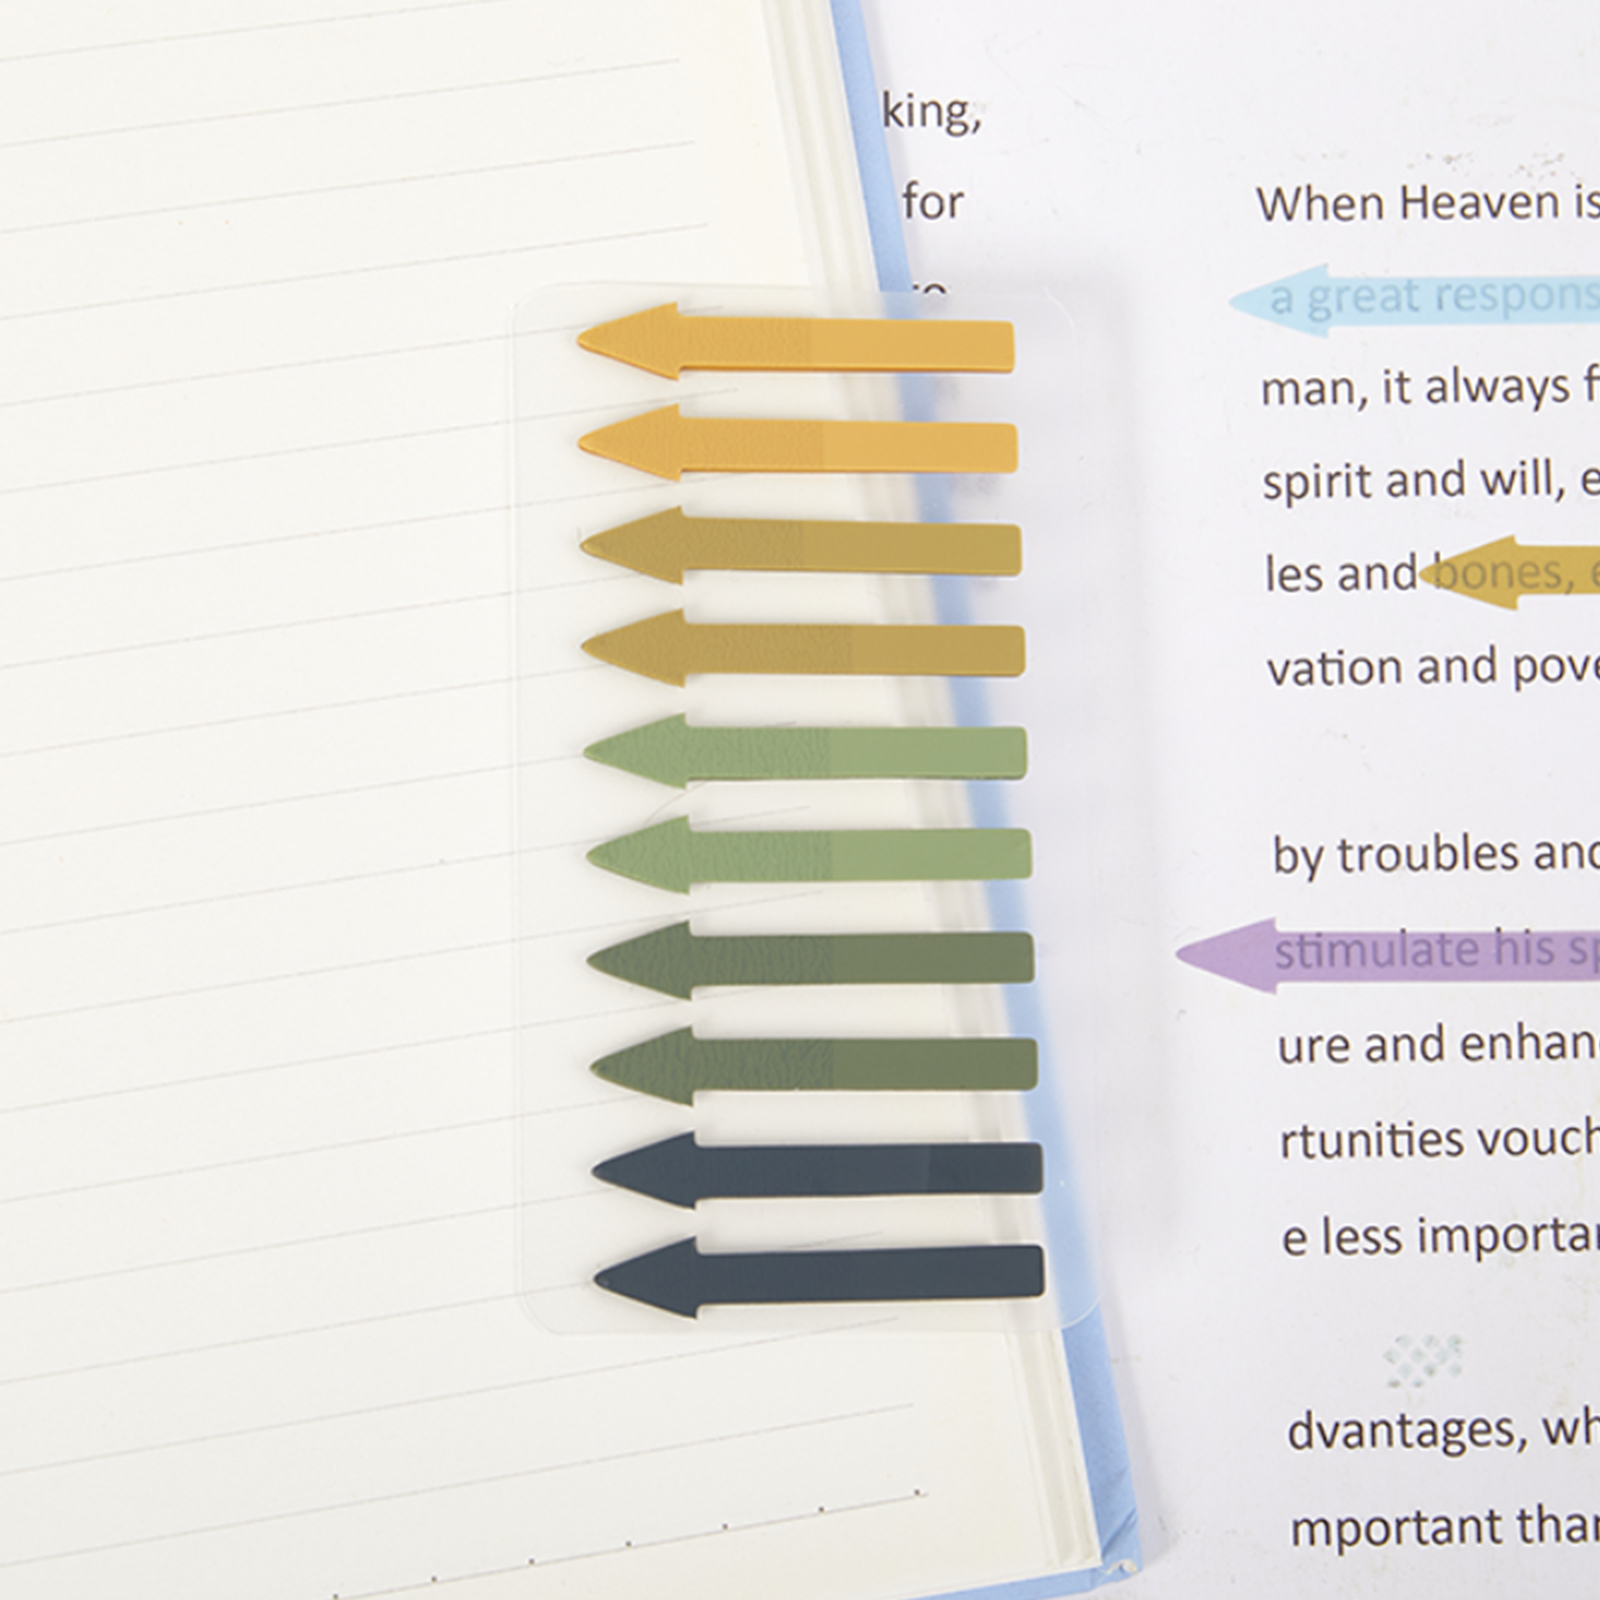 king,
for
When Heaven is
a great respons
man, it always f
spirit and will, e
les and bones, e
vation and pove
by troubles and
stimulate his sp
ure and enhan
rtunities vouch
e less importan
dvantages, wh
mportant than